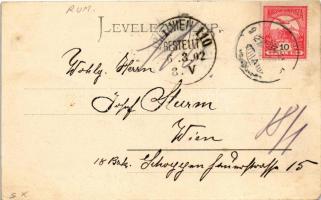 RUM.
LEVELEZ
WIEN 110
BESTELLT
3.02
8. V
10
Wohlg. Herrn
Josef Sturm
Wien
18/1
18 Bez. Schoppenhauerstrasse 15
S K